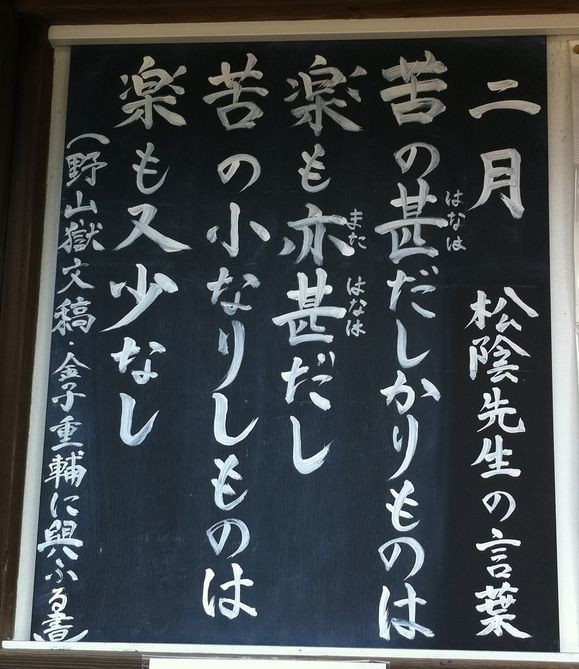 二月 松陰先生の言葉
苦の甚だしかりものは
はなは
楽も亦甚だし
また はなは
苦の小なりしものは
楽も又少なし
（野山獄文稿・金子重輔に與ふる書）